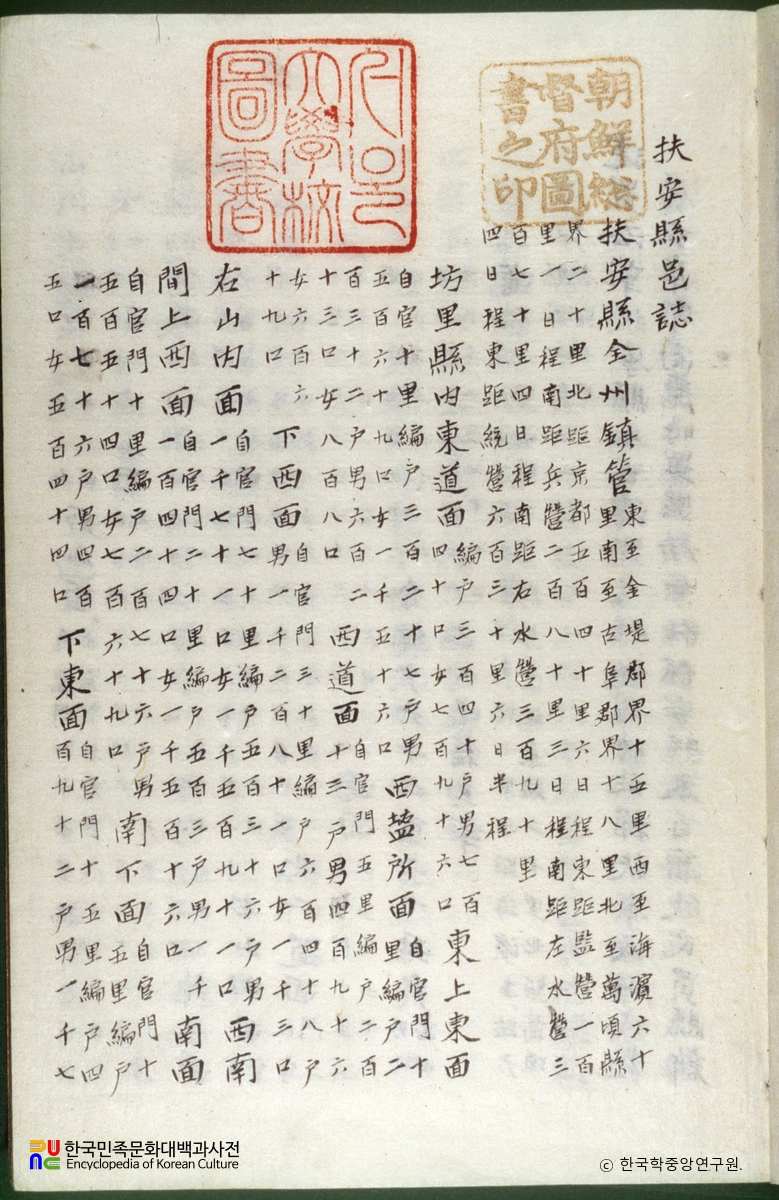 扶安縣邑誌
扶安縣全州鎮管
東至金堤郡界十五里西至海濱六十
里南至古阜郡界十八里北至萬頃縣
界二十里北距京都五百四十里六日程東距監營一百
里一日程南距兵營二百八十里三日程南距左水營三
百七十里四日程南距右水營三百九十里
四日程東距統營六百三十里六日半程
坊里縣內東道面
編戶三百四十戶男七百
四十口女七百九十六口
東上東面
自官十里編戶三百二十七戶男
五百六十九口女一千五十六口
西塩所面
自官門十
里編戶二
百三十二戶男六百二
十三口女八百八口
西道面
自官門五里編戶二百
十三戶男四百九十六
女六百六
十九口
下西面
自官門三十里編戶六百四十八戶
男一千二百八十一口女一千三口
右山內面
自官門七十里編戶五百三十六戶男
一千七十一口女一千五百九十一口
西南
間上西面
自官門二十里編戶五百三戶男一千
一百四十四口女一千五百十六口
南面
自官門十里編戶二百七十六戶男
五百五十四口女七百六十九口
南下面
自官門十
五里編戶
一百七十六戶男四百
五口女五百四十四口
下東面
自官門十五里編戶四
百九十二戶男一千七
朝鮮総
督府圖
書之印
서울
大學校
圖書
한국민족문화대백과사전
Encyclopedia of Korean Culture
ⓒ 한국학중앙연구원.